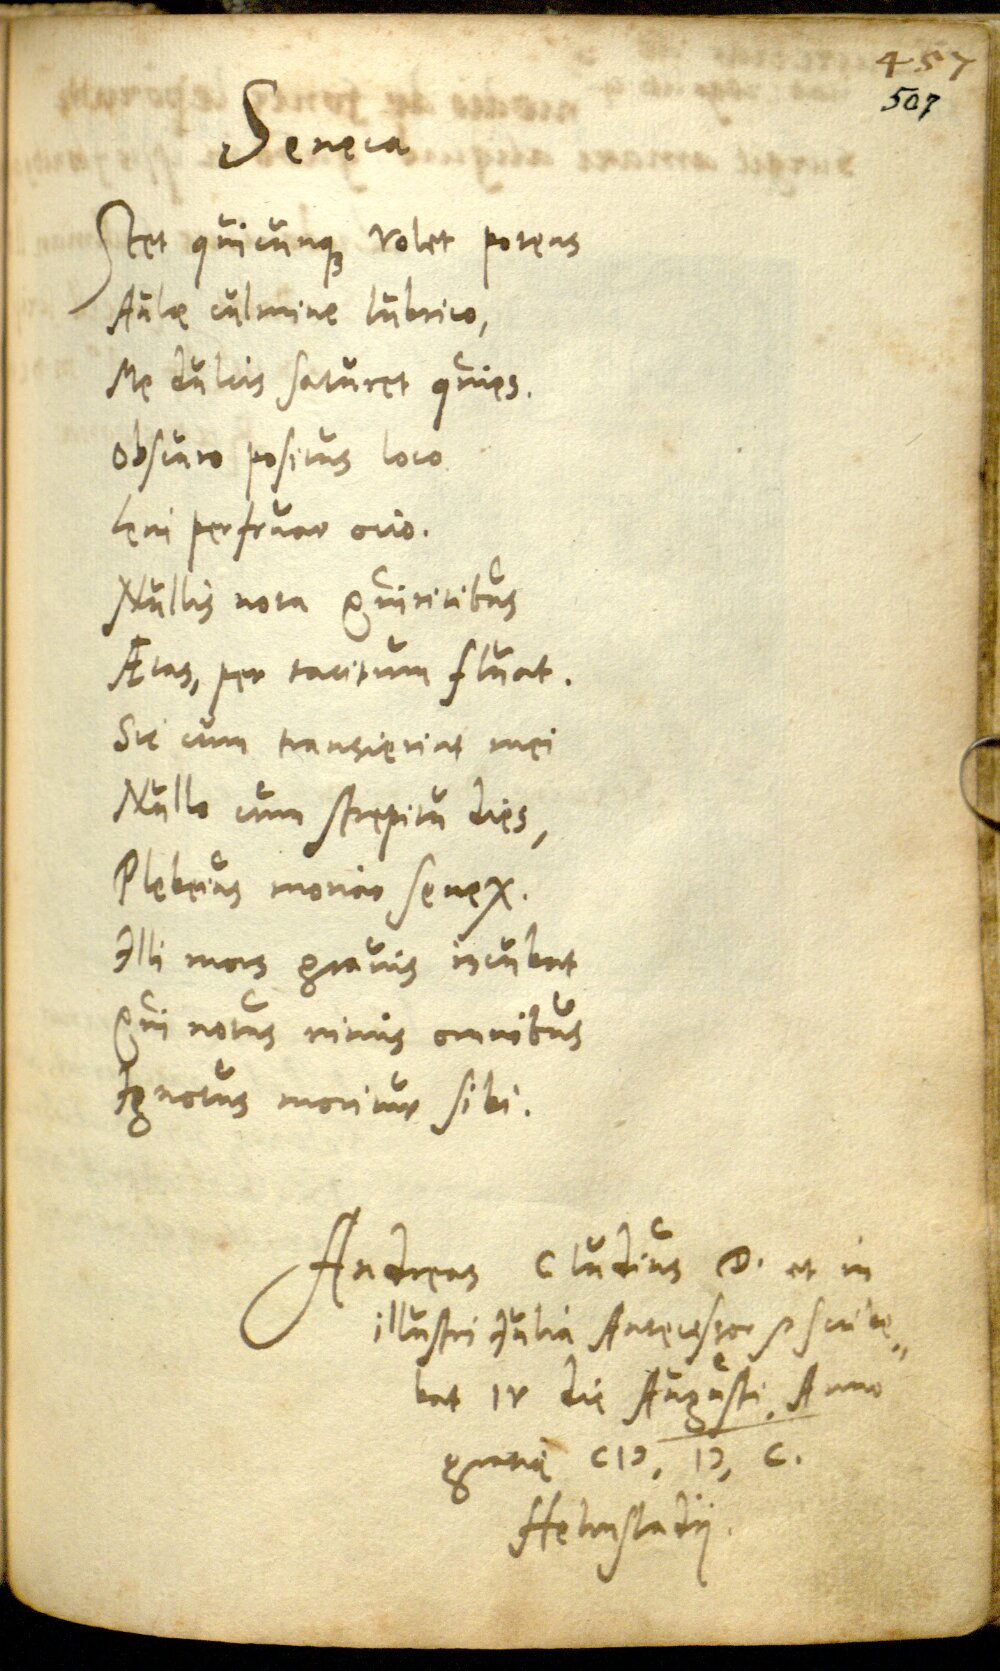 457
507
Seneca
Stet quicunq3 volet potens
Aulæ culmine lubrico,
Me dulcis saturet quies.
Obscuro positus loco
Leni perfruar otio.
Nullis nota quiritibus
Ætas, per tacitum fluat.
Sic cum transierint mei
Nullo cum strepitu dies,
Plebeius moriar senex.
Illi mors gravis incubat
Qui notus nimis omnibus
Ignotus moritur sibi.
Andreas Cludius D. et in
illustri Julia Antecessor scribe„
bat IV die Augusti Anno
gratiæ CIↃ, IↃ, C.
Helmstadij.